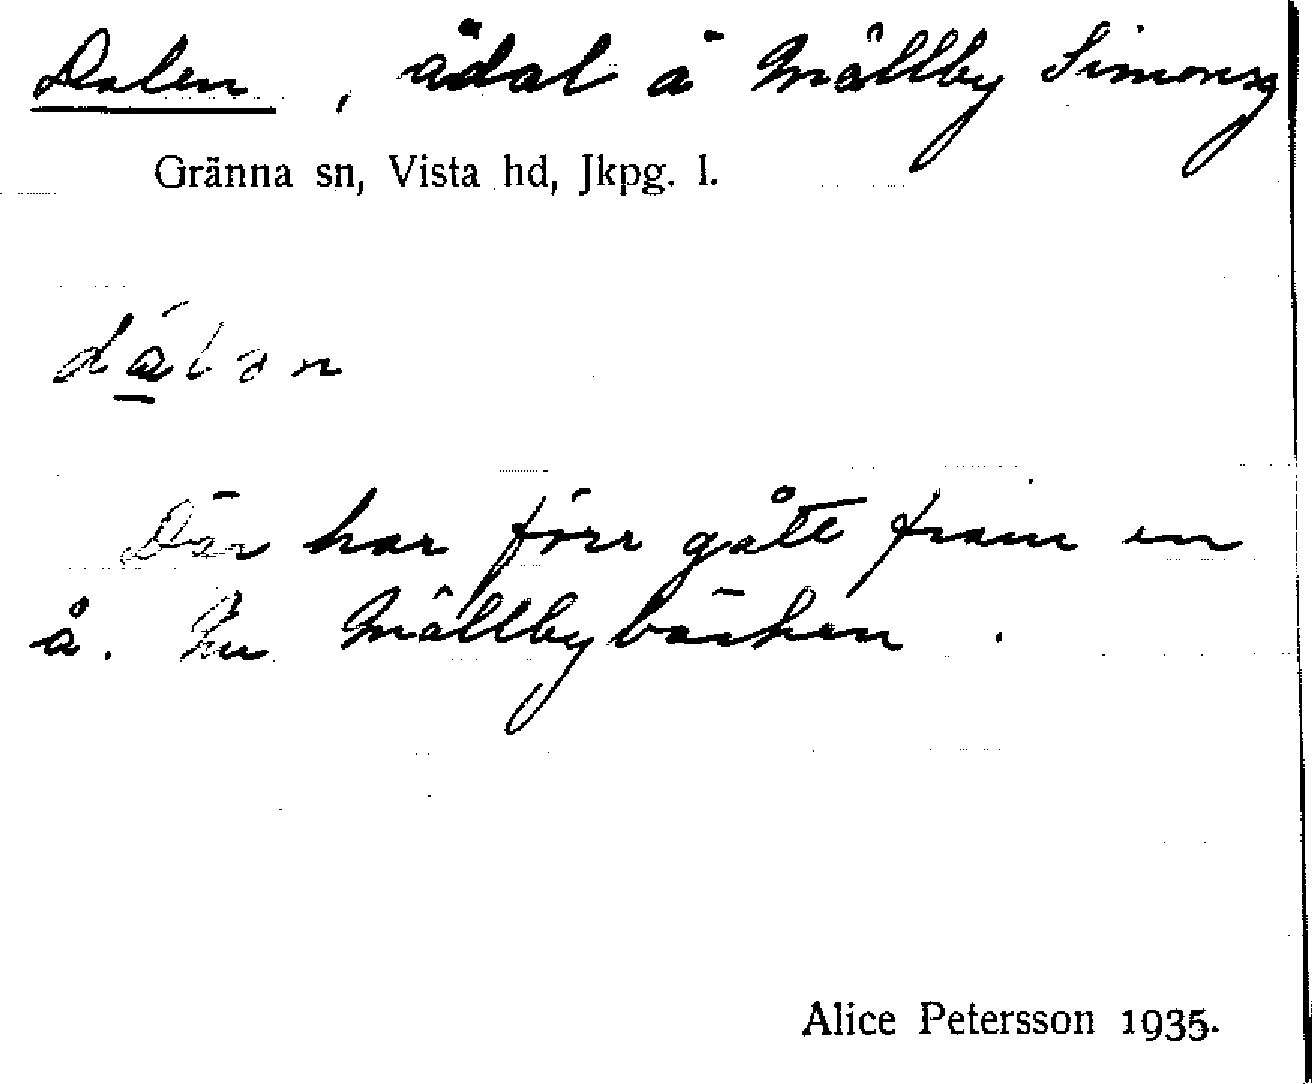 Dalen, ådal å Mållby Simonsg
Gränna sn, Vista hd, Jkpg. l.
dàlan
Där har förr gått fram en
å. Nu Målllbybäcken.
Alice Petersson 1935.